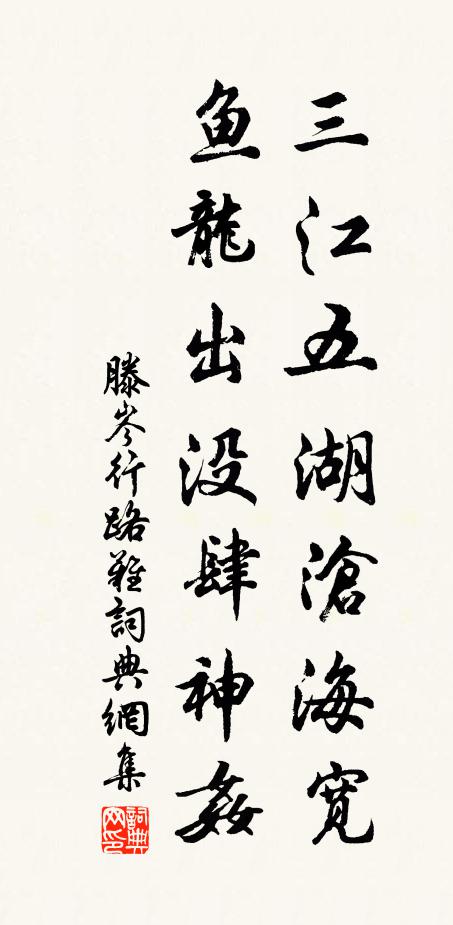 三江五湖滄海寬
鱼龍出没肆神姦
滕岑行路難詞典網集
詞典网印